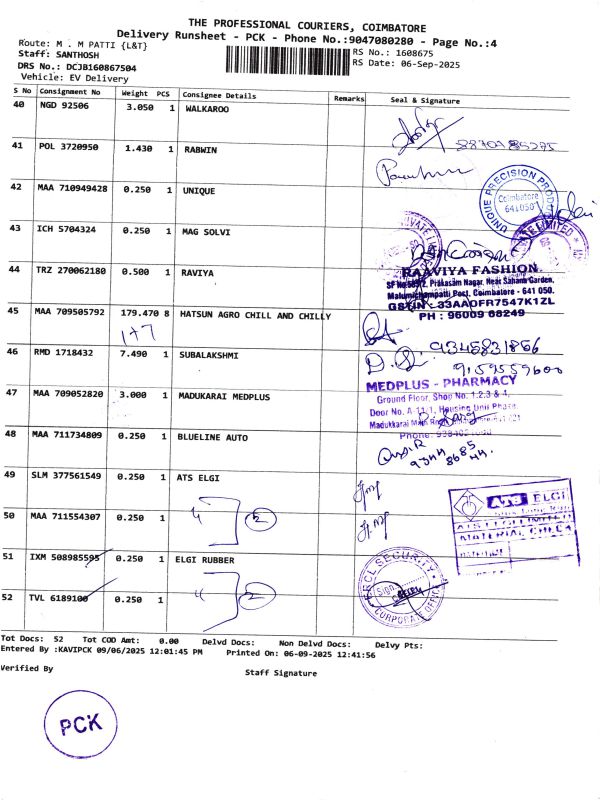 THE PROFESSIONAL COURIERS, COIMBATORE
Delivery Runsheet - PCK - Phone No.:9047080280 - Page No.:4
Route: M . M PATTI {L&T}
RS No.: 1608675
Staff: SANTHOSH
RS Date: 06-Sep-2025
DRS No.: DCJB160867504
Vehicle: EV Delivery
S No Consignment No Weight PCS Consignee Details Remarks Seal & Signature
40 NGD 92506 3.050 1 WALKAROO
41 POL 3720950 1.430 1 RABWIN
42 MAA 710949428 0.250 1 UNIQUE
UNIQUE PRECISION PRODU
Coimbatore
641050
43 ICH 5704324 0.250 1 MAG SOLVI
44 TRZ 270062180 0.500 1 RAVIYA
RAAVIYA FASHION.
SF No 589/2, Prakasam Nagar, Near Sahana Garden,
Malumichampatti Post, Coimbatore - 641 050.
GSTIN : 33AADFR7547K1ZL
PH : 96009 68249
45 MAA 709505792 179.470 8 HATSUN AGRO CHILL AND CHILLY
1+7
9345831856
46 RMD 1718432 7.490 1 SUBALAKSHMI
9159559600
47 MAA 709052820 3.000 1 MADUKARAI MEDPLUS
MEDPLUS - PHARMACY
Ground Floor, Shop No. 1,2,3 & 4,
Door No. A-11/1, Housing Unit Phase
Madukkarai Main Road
Phone:
48 MAA 711734809 0.250 1 BLUELINE AUTO
9344 8685 44.
49 SLM 377561549 0.250 1 ATS ELGI
50 MAA 711554307 0.250 1
4 2
ATS ELGI
ATS ELGI LIMITED
MATERIAL CHECK
51 IXM 508985595 0.250 1 ELGI RUBBER
52 TVL 6189100 0.250 1
4 2
ERCL SECURITY
Sign
CORPORATE OFFICE
Tot Docs: 52 Tot COD Amt: 0.00 Delvd Docs: Non Delvd Docs: Delvy Pts:
Entered By :KAVIPCK 09/06/2025 12:01:45 PM Printed On: 06-09-2025 12:41:56
Verified By
Staff Signature
PCK